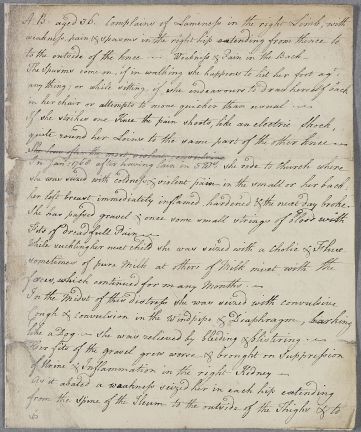 A B aged 36. Complains of Lameness in the right Limb, with
weakness, pain & spasms in the right hip extending from thence to
to the outside of the knee — Weakness & Pain in the Back —
The Spasms come on, if in walking she happens to hit her foot agt
any thing; or while sitting, if she endeavours to draw herself back
in her chair or attempts to move quicker than usual —
If she strikes one Knee the pain shoots, like an electric Shock,
quite round her Loins to the same part of the other knee —
She has for the most violent convulsions
In Jany 1766 after having lain in she rode to Church where
she was seized with coldness & violent pain in the small of her back,
her left breast immediately inflamed hardened & the next day broke.
She has passed gravel & once some small strings of Blood with
Fits of Dreadfull Pain —
While suckling her next child she was seized with a Cholic & Flux
sometimes of pure Milk at others of Milk mixt with the
fæces, which continued for many Months —
In the Midst of this distress she was seized with convulsive
Cough & convulsion in the Windpipe & Diaphragm, barking
like a Dog — She was relieved by bleeding & blistering —
Her fits of the gravel grew worse & brought on Suppression
of Urine & Inflammation in the right Kidney —
As it abated a weakness seized her in each hip extending
from the Spine of the Ileum to the outside of the Thighs & to